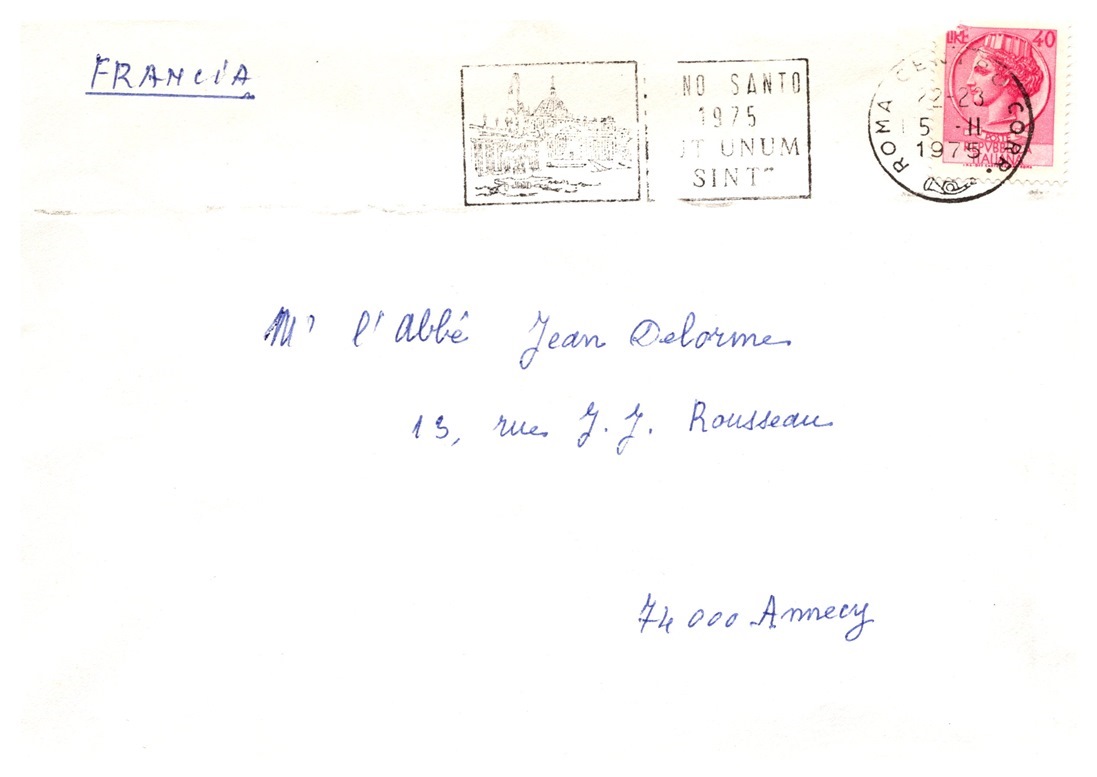 FRANCIA
NO SANTO
1975
UT UNUM
SINT"
LIRE 40
ROMA CENTRO CORR.
22-23
5 -II
1975
POSTE
REPVBBLICA
ITALIANA
Mr l'Abbé Jean Delorme
13, rue J. J. Rousseau
74000 Annecy